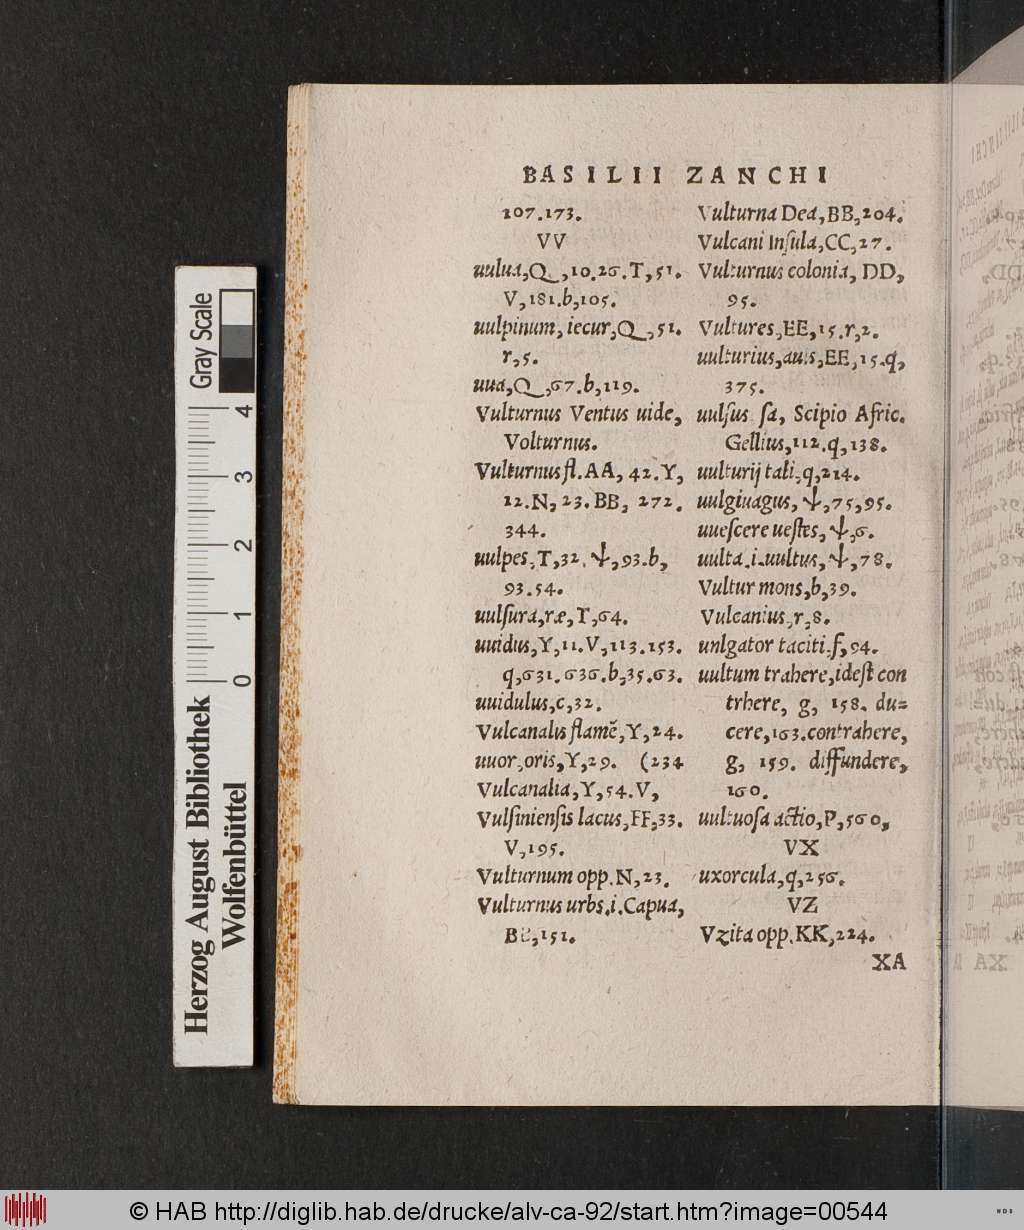 BASILII ZANCHI
107.173.
VV
uulua,Q,10.26.T,51.
V,181.b,105.
uulpinum, iecur,Q,51.
r,5.
uua,Q,67.b,119.
Vulturnus Ventus uide,
Volturnus.
Vulturnus fl.AA, 42.Y,
12.N, 23. BB, 272.
344.
uulpes,T,32. ψ,93.b,
93.54.
uulſura,ræ,T,64.
uuidus,Y,11.V,113.153.
q,631.636.b,35.63.
uuidulus,c,32.
Vulcanalis flamẽ,Y,24.
uuor,oris,Y,29. (234
Vulcanalia,Y,54.V,
Vulſinienſis lacus,FF,33.
V,195.
Vulturnum opp.N,23.
Vulturnus urbs.i.Capua,
BB,151.
Vulturna Dea,BB,204.
Vulcani Inſula,CC,27.
Vulturnus colonia, DD,
95.
Vultures,EE,15.r,2.
uulturius,auis,EE,15.q,
375.
uulſus ſa, Scipio Afric.
Gellius,112.q,138.
uulturij tali,q,214.
uulgiuagus, ψ,75,95.
uueſcere ueſtes,ψ,6.
uulta.i.uultus,ψ,78.
Vultur mons,b,39.
Vulcanius,r,8.
unlgator taciti.f,94.
uultum trahere,ideſt con
trhere, g, 158. du=
cere,163.contrahere,
g, 159. diffundere,
160.
uultuoſa actio,P,560,
VX
uxorcula,q,256.
VZ
Vzita opp.KK,224.
XA
Gray Scale
4
3
2
1
0
Herzog August Bibliothek
Wolfenbüttel
© HAB http://diglib.hab.de/drucke/alv-ca-92/start.htm?image=00544